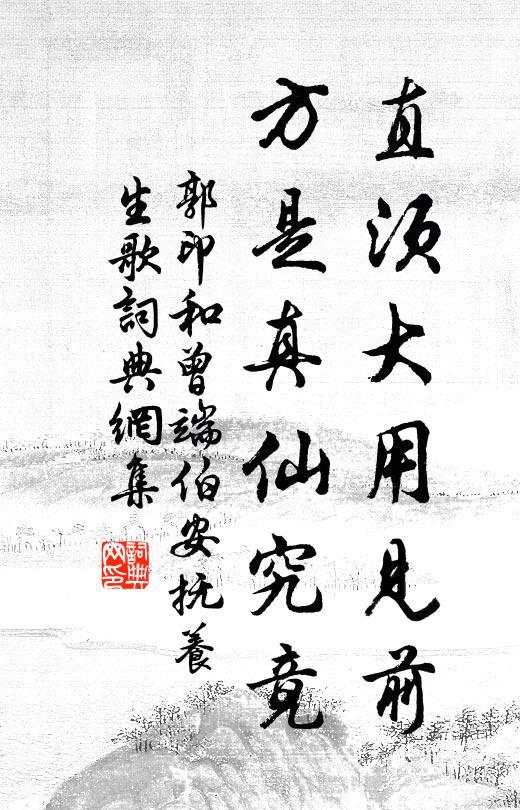 直须大用見前
方是真仙究竟
郭印和曾端伯安抚養
生歌詞典網集
詞典
网印